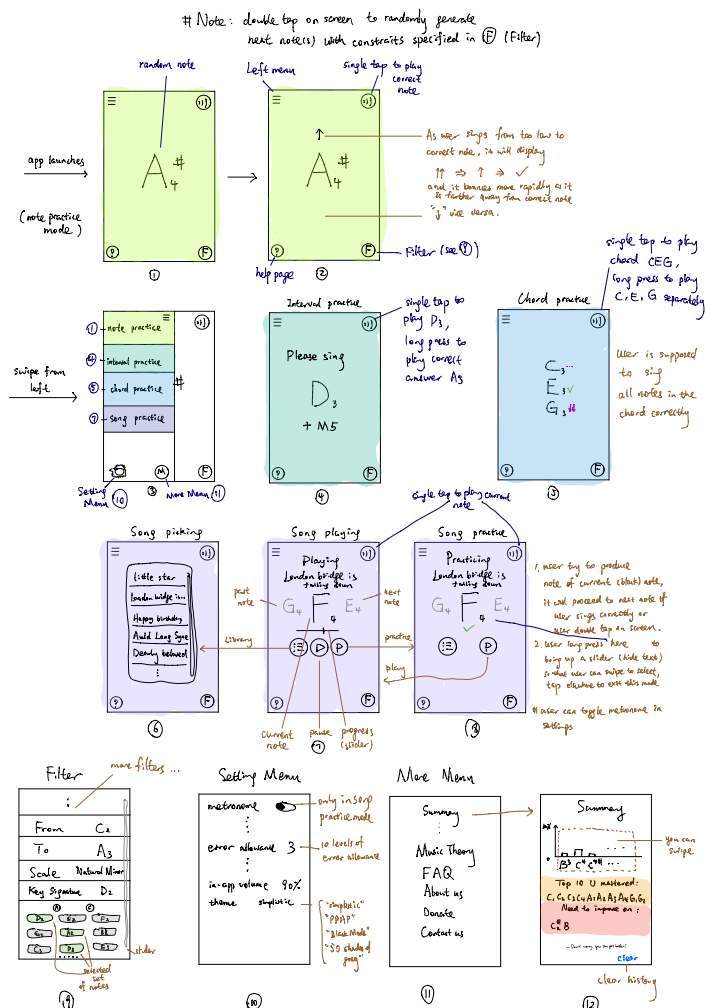 # Note: double tap on screen to randomly generate
next note(s) with constraits specified in Ⓕ (Filter)
random note
Left menu
single tap to play
correct
note
app launches
(note practice
mode)
A#4
?
F
①
↑
A#4
?
F
help page
②
As user sings from too low to
correct note, it will display
↑↑ ⇒ ↑ ⇒ ✓
and it bounces more rapidly as it
is farther away from correct note
"↓" vice versa.
Filter (see ⑨)
swipe from
left
① note practice
④ interval practice
⑤ chord practice
⑦ song practice
#
M
F
Setting
Menu ⑩
③
More Menu ⑪
Interval practice
Please sing
D3
+ M5
?
F
④
single tap to
play D3,
long press to
play correct
answer A3
Chord practice
C3 ...
E3 ✓
G3 ↓↓
?
F
⑤
single tap to play
chord CEG,
long press to play
C, E, G separately
User is supposed
to sing
all notes in the
chord correctly
Song picking
little star
london bridge is...
Happy birthday
Auld Lang Syne
Dearly beloved
⋮
?
F
⑥
Library
Song playing
Playing
London bridge is
falling down
past
note
G4 F4 E4
next
note
P
current
note
pause
progress
(slider)
⑦
single tap to play current
note
practice
play
Song practice
Practicing
London bridge is
falling down
G4 F4 E4
✓
P
?
F
⑧
1. user try to produce
note of current (black) note,
it will proceed to next note if
user sings correctly or
user double tap on screen.
2. user long press here to
bring up a slider (hide text)
so that user can swipe to select,
tap elsewhere to exit this mode
# user can toggle metronome in
settings
Filter
more filters ...
⋮
From C2
To A3
Scale Natural Minor
Key Signature D2
slider
selected
set
of notes
⑨
Setting Menu
metronome
only in song
practice mode
error allowance 3
10 levels of
error allowance
in-app volume 90%
theme simplistic
"simplistic"
"PPAP"
"Black Mode"
"50 shades of
grey"
⑩
More Menu
Summary
Music Theory
FAQ
About us
Donate
Contact us
⑪
Summary
0
B3 C4 C4# ...
you can
swipe
Top 10 U mastered:
Need to improve on:
clear
clear history
⑫